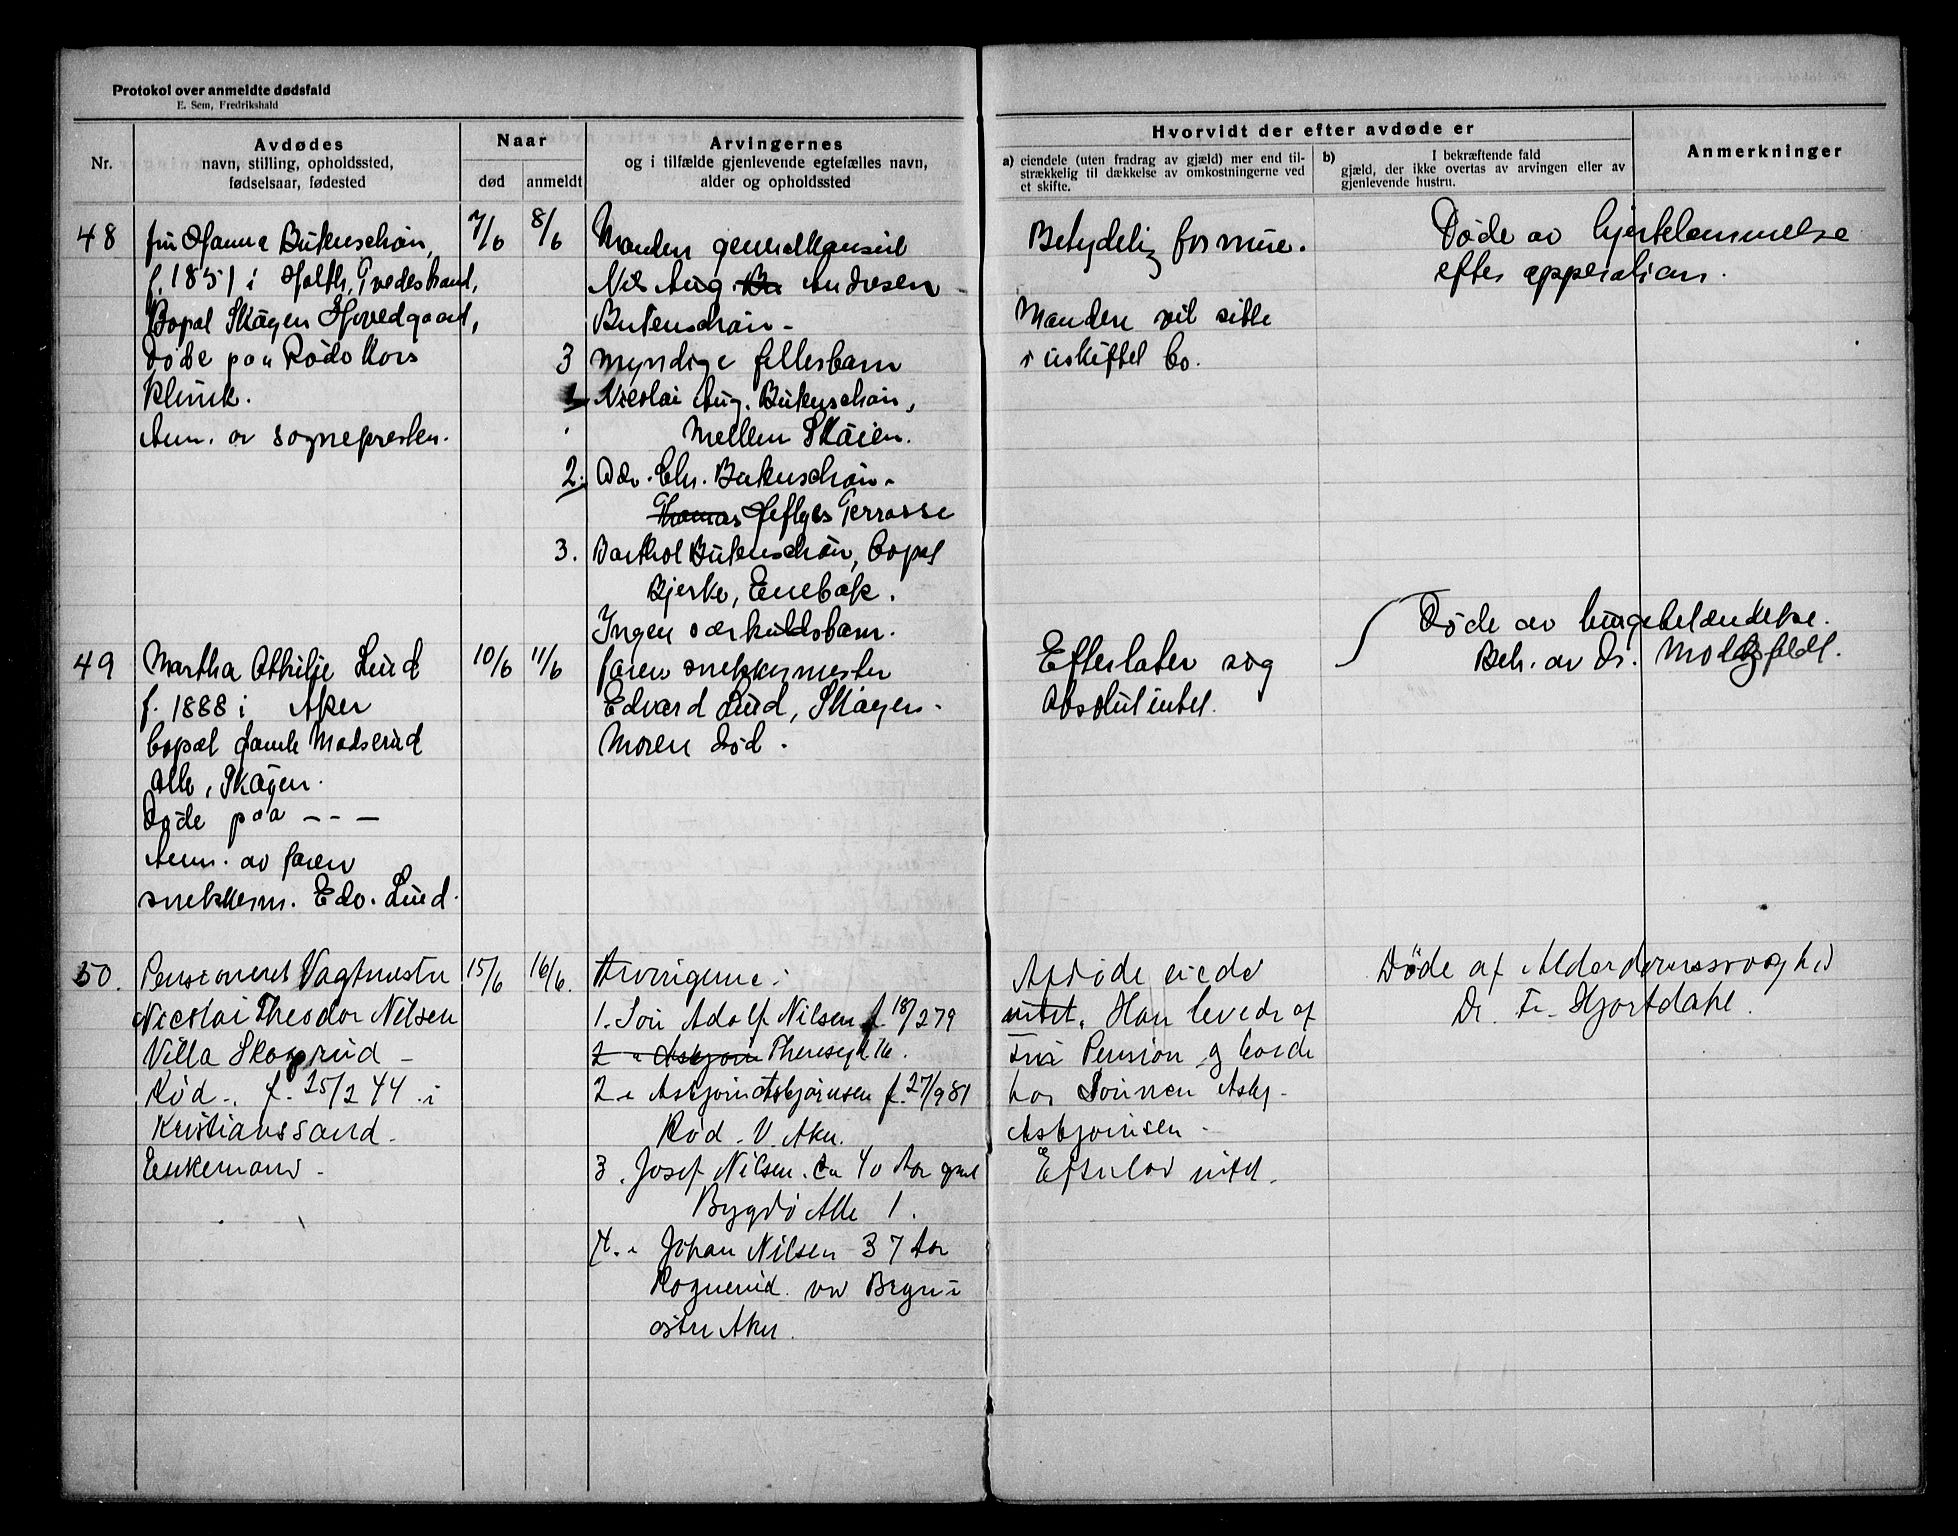 Protokol over anmeldte dødsfald
E. Sem, Fredrikshald
Nr.
Avdødes
navn, stilling, opholdssted,
fødselsaar, fødested
Naar
død
anmeldt
Arvingernes
og i tilfælde gjenlevende egtefælles navn,
alder og opholdssted
Hvorvidt der efter avdøde er
a) eiendele (uten fradrag av gjæld) mer end til-
strækkelig til dækkelse av omkostningerne ved
et skifte.
b) I bekræftende fald
gjæld, der ikke overtas av arvingen eller av
gjenlevende hustru.
Anmerkninger
48
fru Hanna Butenschøn,
f. 1851 i Holth, Tvedestrand,
Bopæl Skøyen Hovedgaard,
Døde paa Røde Kors
Klinik.
Anm. av sognepresten.
7/6
8/6
Manden generalkonsul
Nils Aug Bu Andresen
Butenschøn -
3 myndige fellesbarn
1 Nicolai Aug. Butenschøn,
Mellem Skøien.
2. Adv. Chr. Butenschøn -
Thomas Heftyes Terrasse
3. Barthol Butenschøn, bopæl
Bjerke, Enebak.
Ingen særkuldsbarn.
Betydelig formue.
Manden vil sitte
i uskiftet bo.
Døde av hjerteLammelse
efter opperation.
49
Martha Othilje Lund
f. 1888 i Aker
bopæl Gamle Madserud
Alle, Skøyen.
Døde paa - - -
Anm. av faren
snekkerm. Edv. Lund.
10/6
11/6
faren snekkermester
Edvard Lund, Skøyen -
Moren død.
Efterlater sig
absolut intet.
Døde av lungebetændelse.
Beh. av Dr.
50.
Pensioneret Vagtmester
Nicolai Theodor Nilsen
Villa Skogrud -
Rød. f. 25/2 44 i
Kristianssand -
Enkemand -
15/6
16/6.
Arvingerne:
1. Søn Adolf Nilsen f. 18/2 79
2 " Asbjørn Theresegt 16.
2 " Asbjørn Asbjørnsen f. 27/9 81
Rød. V. Aker.
3. Josef Nilsen. ca 40 Aar gml
Bygdø Alle 1.
4. " Johan Nilsen 37 Aar
Rognerud. ved Bryn i
østre Aker.
Afdøde eiede
intet. Han levede af
sin Pension og boede
hos Sønnen Asbj.
Asbjørnsen -
Efterlod intet.
Døde af Alderdomssvaghed
Dr. Fr. Hjortdahl.